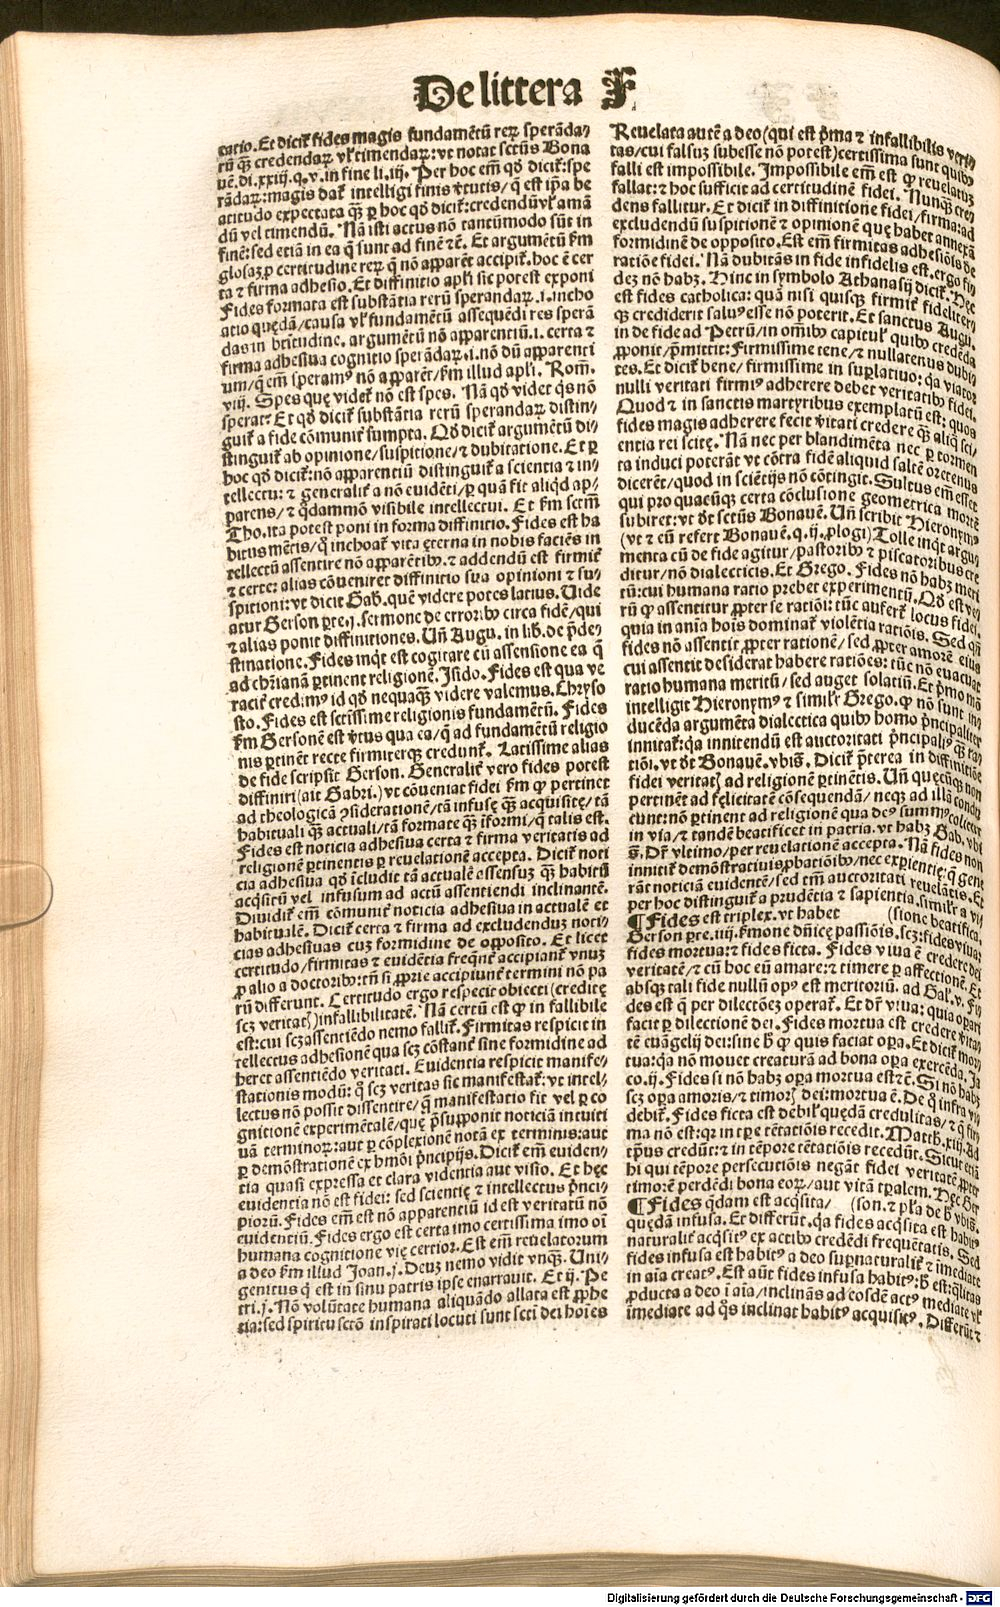 De littera F
catio. Et dicit᷑ fides magis fundamētū reꝝ sperāda-
rū q̄ꝫ credendaꝝ vl̓ timendaꝝ: vt notat sctūs Bona
uē. di. xxiij. q. v. in fine li. iij. Per hoc em̄ qd̓ dicit᷑: spe
rādaꝝ: magis dat᷑ intelligi finis v̓tutis / q̄ est ip̄a be
atitudo expectata q̄ꝫ ꝑ hoc qd̓ dicit᷑: credendū vl̓ amā
dū vel timendū. Nā isti actus nō tantūmodo sūt in
finē: sed etiā in ea q̄ sunt ad finē ⁊c̄. Et argumētū ẜm
glosaꝫ ꝓ certitudine reꝝ q̄ nō apparēt accipit᷑. hoc ē cer
ta ⁊ firma adhesio. Et diffinitio apl̓i sic potest exponi
Fides formata est substātia rerū sperandaꝝ .i. incho
atio quędā / causa vl̓ fundamētū assequēdi res sperā
das in btītudine. argumētū nō apparentiū .i. certa ⁊
firma adhesiua cognitio sperādaꝝ .i. nō dū apparenti
um / q̄ em̄ speramꝰ nō apparēt / ẜm illud apl̓i. Rom̄.
viij. Spes quę videt᷑ nō est spes. Nā qd̓ videt q̄s nō
sperat? Et qd̓ dicit᷑ substātia rerū sperandaꝝ distin-
guit᷑ a fide cōmunit᷑ sumpta. Qd̓ dicit᷑ argumētū di-
stinguit᷑ ab opinione / suspitione / ⁊ dubitatione. Et ꝑ
hoc qd̓ dicit᷑: nō apparentiū distinguit᷑ a scientia ⁊ in-
tellectu: ⁊ generalit᷑ a nō euidēti / ꝑ quā fit aliqd̓ ap-
parens / ⁊ q̄dammō visibile intellectui. Et ẜm sctm̄
Tho. ita potest poni in forma diffinitio. Fides est ha
bitus mētis / q̄ inchoat᷑ vita ęterna in nobis faciēs in
tellectū assentire nō apparētibꝰ. ⁊ addendū est firmit᷑
⁊ certe: alias cōueniret diffinitio sua opinioni ⁊ su-
spitioni: vt dicit Gab. quē videre potes latius. Uide
atur Gerson ꝑte .j. sermone de erroribꝰ circa fidē / qui
⁊ alias ponit diffinitiones. Un̄ Augu. in lib̓. de p̄de-
stinatione. Fides inq̄t est cogitare cū assensione ea q̄
ad chr̄ianā ꝑtinent religionē. Isido. Fides est qua ve
racit᷑ credimꝰ id qd̓ nequaq̄ꝫ videre valemus. Chryso
sto. Fides est sctīssime religionis fundamētū. Fides
ẜm Gersonē est v̓tus qua ea / q̄ ad fundamētū religio
nis ꝑtinēt recte firmiterqꝫ credunt᷑. Latissime alias
de fide scripsit Gerson. Generalit᷑ vero fides potest
diffiniri (ait Gabri.) vt cōueniat fidei ẜm ꝙ pertinet
ad theologicā ꝯsiderationē / tā infusę q̄ꝫ acquisitę / tā
habituali q̄ꝫ actuali / tā formate q̄ꝫ īformi / q̄ talis est.
Fides est noticia adhesiua certa ⁊ firma veritatis ad
religionē ꝑtinentis ꝑ reuelationē accepta. Dicit᷑ noti
cia adhesiua qd̓ īcludit tā actualē assensuꝫ q̄ꝫ habitū
acq̄sitū vel infusum ad actū assentiendi inclinantē.
Diuidit᷑ em̄ cōmunit᷑ noticia adhesiua in actualē et
habitualē. Dicit᷑ certa ⁊ firma ad excludenduꝫ noti-
cias adhesiuas cuꝫ formidine de opposito. Et licet
certitudo / firmitas ⁊ euidētia freq̄nt᷑ accipiant᷑ vnuꝫ
ꝓ alio a doctoribꝰ: tn̄ si ꝓprie accipiunt᷑ termini nō pa
rū differunt. Certitudo ergo respicit obiecti (creditę
scꝫ veritatꝭ) infallibilitatē. Nā certū est ꝙ in fallibile
est: cui scꝫ assentiēdo nemo fallit᷑. Firmitas respicit in
tellectus adhesionē qua scꝫ cōstant᷑ sine formidine ad
heret assentiēdo veritati. Euidentia respicit manife-
stationis modū: q̄ scꝫ veritas sic manifestat᷑: vt intel-
lectus nō possit dissentire / q̄ manifestatio fit vel ꝑ co
gnitionē experimētalē / quę p̄supponit noticiā intuiti
uā terminoꝝ: aut ꝑ cōplexionē notā ex terminis: aut
ꝑ demōstrationē ex hmōi p̄ncipijs. Dicit᷑ em̄ euiden-
tia quasi expressa et clara videntia aut visio. Et hęc
euidentia nō est fidei: sed scientię ⁊ intellectus p̄nci-
piorū. Fides em̄ est nō apparentiū id est veritatū nō
euidentiū. Fides ergo est certa imo certissima imo oī
humana cognitione vię certior. Est em̄ reuelatorum
a deo ẜm illud Joan. j. Deuꝫ nemo vidit vnq̄ꝫ. Uni-
genitus q̄ est in sinu patris ipse enarrauit. Et ij. Pe
tri. j. Nō volūtate humana aliquādo allata est ꝓphe
tia: sed spiritu sctō inspirati locuti sunt scti dei hoīes
Reuelata autē a deo (qui est p̄ma ⁊ infallibilis veri-
tas / cui falsuꝫ subesse nō potest) certissima sunt quibꝰ
falli est impossibile. Impossibile em̄ est ꝙ reuelatuꝫ
fallat: ⁊ hoc sufficit ad certitudinē fidei. Nunq̄ꝫ cre-
dens fallitur. Et dicit᷑ in diffinitione fidei / firma: ad
excludendū suspitionē ⁊ opinionē quę habet annexā
formidinē de opposito. Est em̄ firmitas adhesiōis de
ratiōe fidei. Nā dubitās in fide infidelis est. ergo fi-
deꝫ nō habꝫ. Hinc in symbolo Athanasij dicit᷑. Hęc
est fides catholica: quā nisi quisqꝫ firmit᷑ fideliterqꝫ
crediderit saluꝰ esse nō poterit. Et sanctus Augu.
in de fide ad Petrū / in om̄ibꝰ capitul̓ quibꝰ credēda
ꝓponit / p̄mittit: Firmissime tene / ⁊ nullatenus dubi-
tes. Et dicit᷑ bene / firmissime in suꝑlatiuo: q̄a viator
nulli veritati firmiꝰ adherere debet veritatibꝰ fidei.
Quod ⁊ in sanctis martyribus exemplatū est: quos
fides magis adherere fecit v̓itati credite q̄ꝫ aliq̄ sci-
entia rei scitę. Nā nec per blandimēta nec ꝑ tormen
ta induci poterāt vt cōtra fidē aliquid saltē ore tenus
dicerēt / quod in sciētijs nō cōtingit. Stultus em̄ esset
qui pro quacūqꝫ certa cōclusione geometrica mortē
subiret: vt dt̓ sctūs Bonauē. Un̄ scribit Hieronymꝰ
(vt ⁊ eū refert Bonauē. q. ij. ꝓlogi) Tolle inq̄t argu-
menta cū de fide agitur / pastoribꝰ ⁊ piscatoribus cre
ditur / nō dialecticis. Et Grego. Fides nō habꝫ meri
tū: cui humana ratio prebet experimentū. Qd̓ est ve-
rū q̄n assentitur ꝓpter se ratiōi: tūc aufert᷑ locus fidei.
quia in aīa hoīs dominat᷑ violētia ratiōis. Sed q̄n
fides nō assentit ꝓpter rationē / sed ꝓpter amorē eius
cui assentit desiderat habere ratiōes: tūc nō euacuat
ratio humana meritū / sed auget solatiū. Et p̄mo mō
intelligit Hieronymꝰ ⁊ simil̓r Grego. ꝙ nō sunt in-
ducēda argumēta dialectica quibꝰ homo p̄ncipaliter
innitat᷑: q̄a innitendū est auctoritati p̄ncipaliꝰ q̄ꝫ ra-
tiōi. vt dt̓ Bonauē. vbi s̄. Dicit᷑ p̄terea in diffinitiōe
fidei veritatꝭ ad religionē ꝑtinētis. Un̄ quęcūqꝫ non
pertinēt ad felicitatē cōsequendā / neqꝫ ad illā condu
cunt: nō ꝑtinent ad religionē qua deꝰ summꝰ colitur
in via / ⁊ tandē beatificet in patria. vt habꝫ Gab. vbi
s̄. Dr̄ vltimo / per reuelationē accepta. Nā fides non
innitit᷑ demōstratiuis ꝓbatiōibꝰ / nec exꝑientię: q̄ gene
rāt noticiā euidentē / sed tm̄ auctoritati reuelātis. Et
per hoc distinguit᷑ a prudētia ⁊ sapientia. simil̓r a vi-
¶ Fides est triplex. vt habet (sione beatifica.
Gerson ꝑte. iiij. ẜmone dn̄icę passiōis. scꝫ: fides viua:
fides mortua: ⁊ fides ficta. Fides viua ē credere dei
veritatē / ⁊ cū hoc eū amare: ⁊ timere ꝑ affectionē. Et
absqꝫ tali fide nullū opꝰ est meritoriū. ad Gal̓. v. Fi-
des est q̄ per dilectōeꝫ operat᷑. Et dr̄ viua: quia oꝑari
facit ꝑ dilectionē dei. Fides mortua est credere v̓ita-
tē euāgelij dei: sine hͦ ꝙ quis faciat oꝑa. Et dicit᷑ mor
tua: q̄a nō mouet creaturā ad bona oꝑa exercēda. Ja
co. ij. Fides si nō habꝫ oꝑa mortua est ⁊c̄. Si nō habꝫ
scꝫ opera amoris / ⁊ timorꝭ dei: mortua ē. De q̄ infra vi-
debit᷑. Fides ficta est debil̓ quędā credulitas / ⁊ q̄ fir
ma nō est: qꝛ in tꝑe tētatiōis recedit. Matth. xiij. Ad
tp̄us credūt: ⁊ in tēpore tētatiōis recedūt. Sicut etiā
hi qui tēpore persecutiōis negāt fidei veritatē ꝓpter
timorē perdēdi bona eoꝝ / aut vitā tꝑalem. Hęc Ger
¶ Fides q̄dam est acq̄sita / (son. ⁊ pl̓a de hͦ vbi s̄.
quędā infusa. Et differūt. q̄a fides acq̄sita est habitꝰ
naturalit᷑ acq̄sitꝰ ex actibꝰ credēdi frequētatis. Sed
fides infusa est habitꝰ a deo suꝑnaturalit᷑ ⁊ īmediate
in aīa creatꝰ. Est aūt fides infusa habitꝰ: hͦ est: q̄litas
ꝓducta a deo ī aīa / inclinās ad eosdē actꝰ mediate vl̓
īmediate ad q̄s inclinat habitꝰ acquisitꝰ. Differūt ⁊
Digitalisierung gefördert durch die Deutsche Forschungsgemeinschaft - DFG